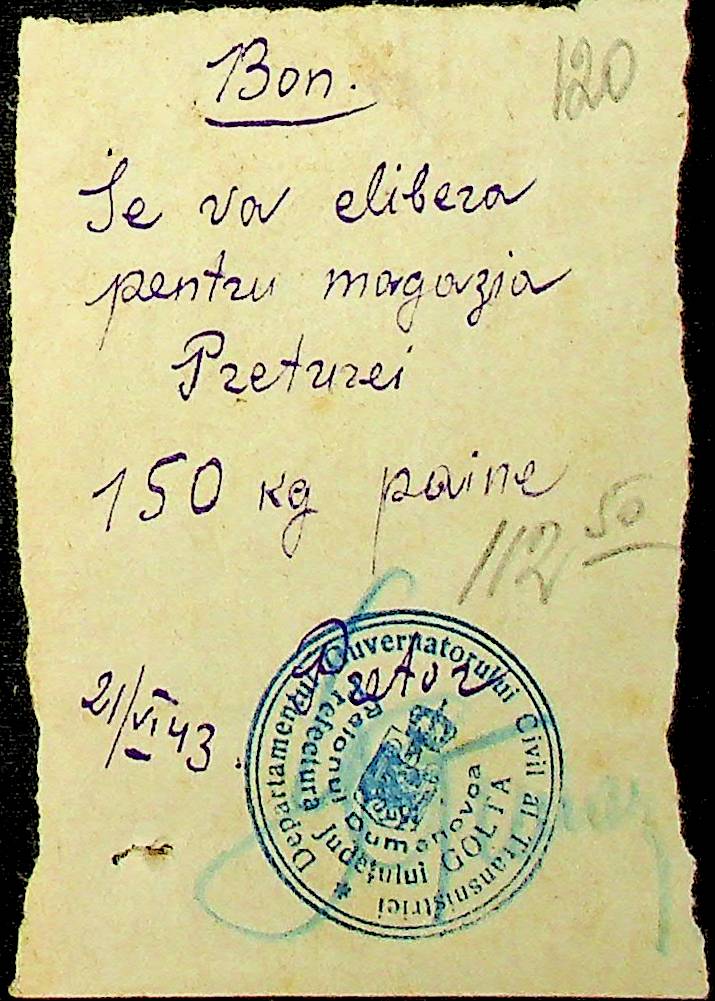 Bon.
120
Se va elibera
pentru magazia
Preturei
150 kg paine
112 50
21/VI 43.
Pretor
Departamentul Guvernatorului Civil al Transnistriei
Prefectura Județului GOLTA
Raionul Dumanovca